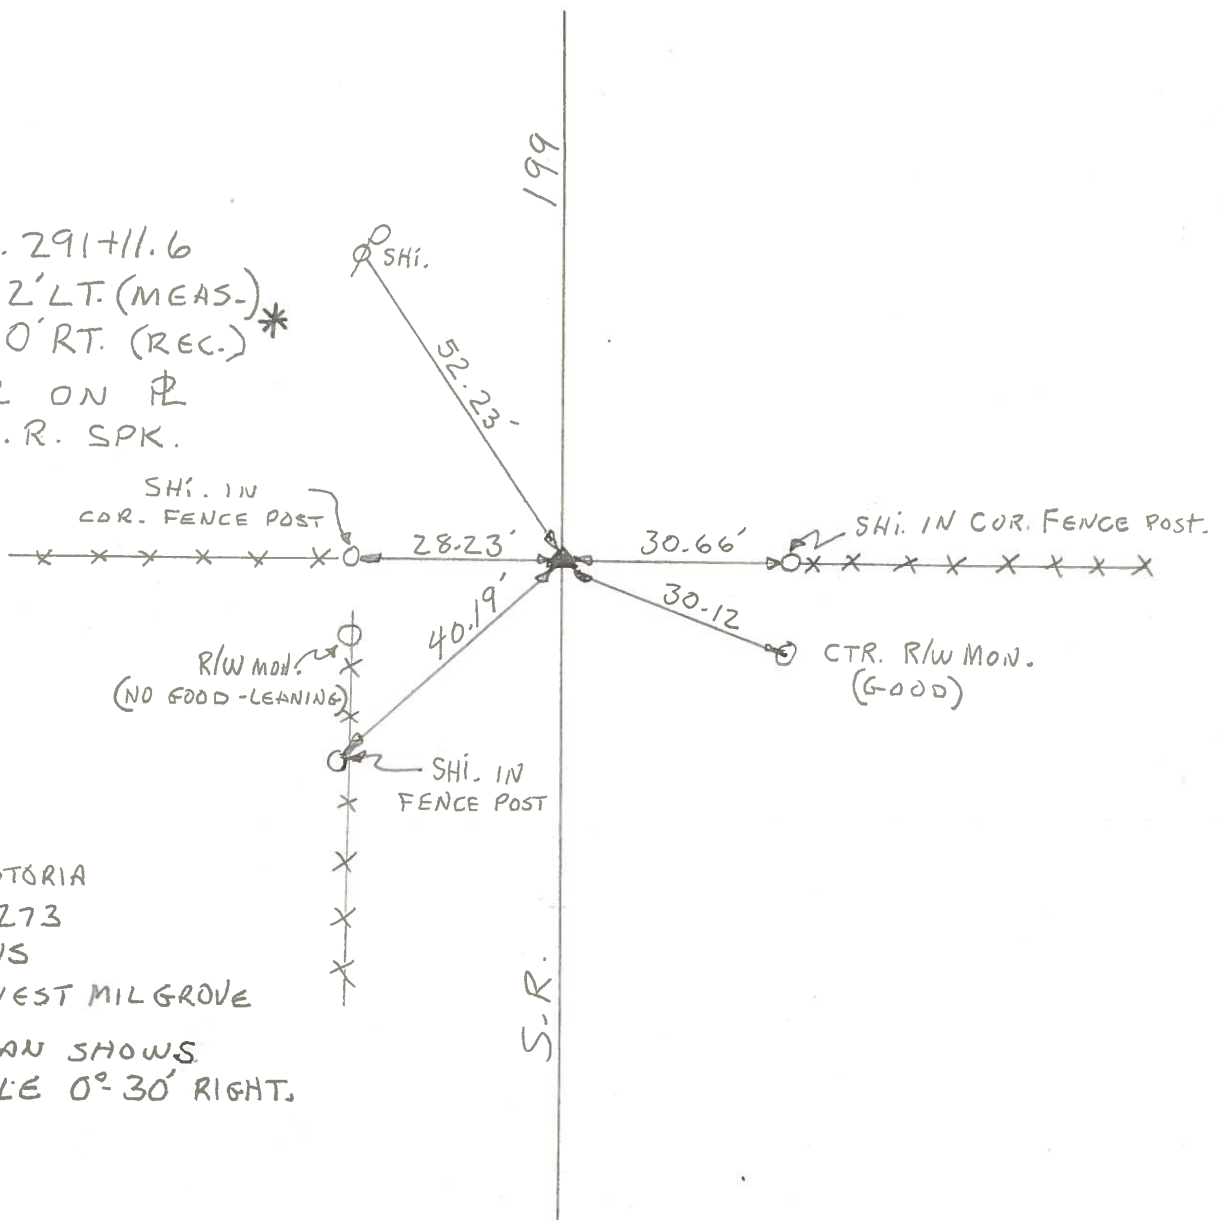 199
. 291+11.6
2' LT. (MEAS.)
0' RT. (REC.) *
ON PL
.R. SPK.
SHI.
52.23'
SHI. IN
COR. FENCE POST
28.23'
30.66'
SHI. IN COR. FENCE POST.
40.19'
30.12
R/W MON.
(NO GOOD-LEANING)
CTR. R/W MON.
(GOOD)
SHI. IN
FENCE POST
TORIA
273
WEST MILGROVE
AN SHOWS
LE 0°-30' RIGHT.
S.R.